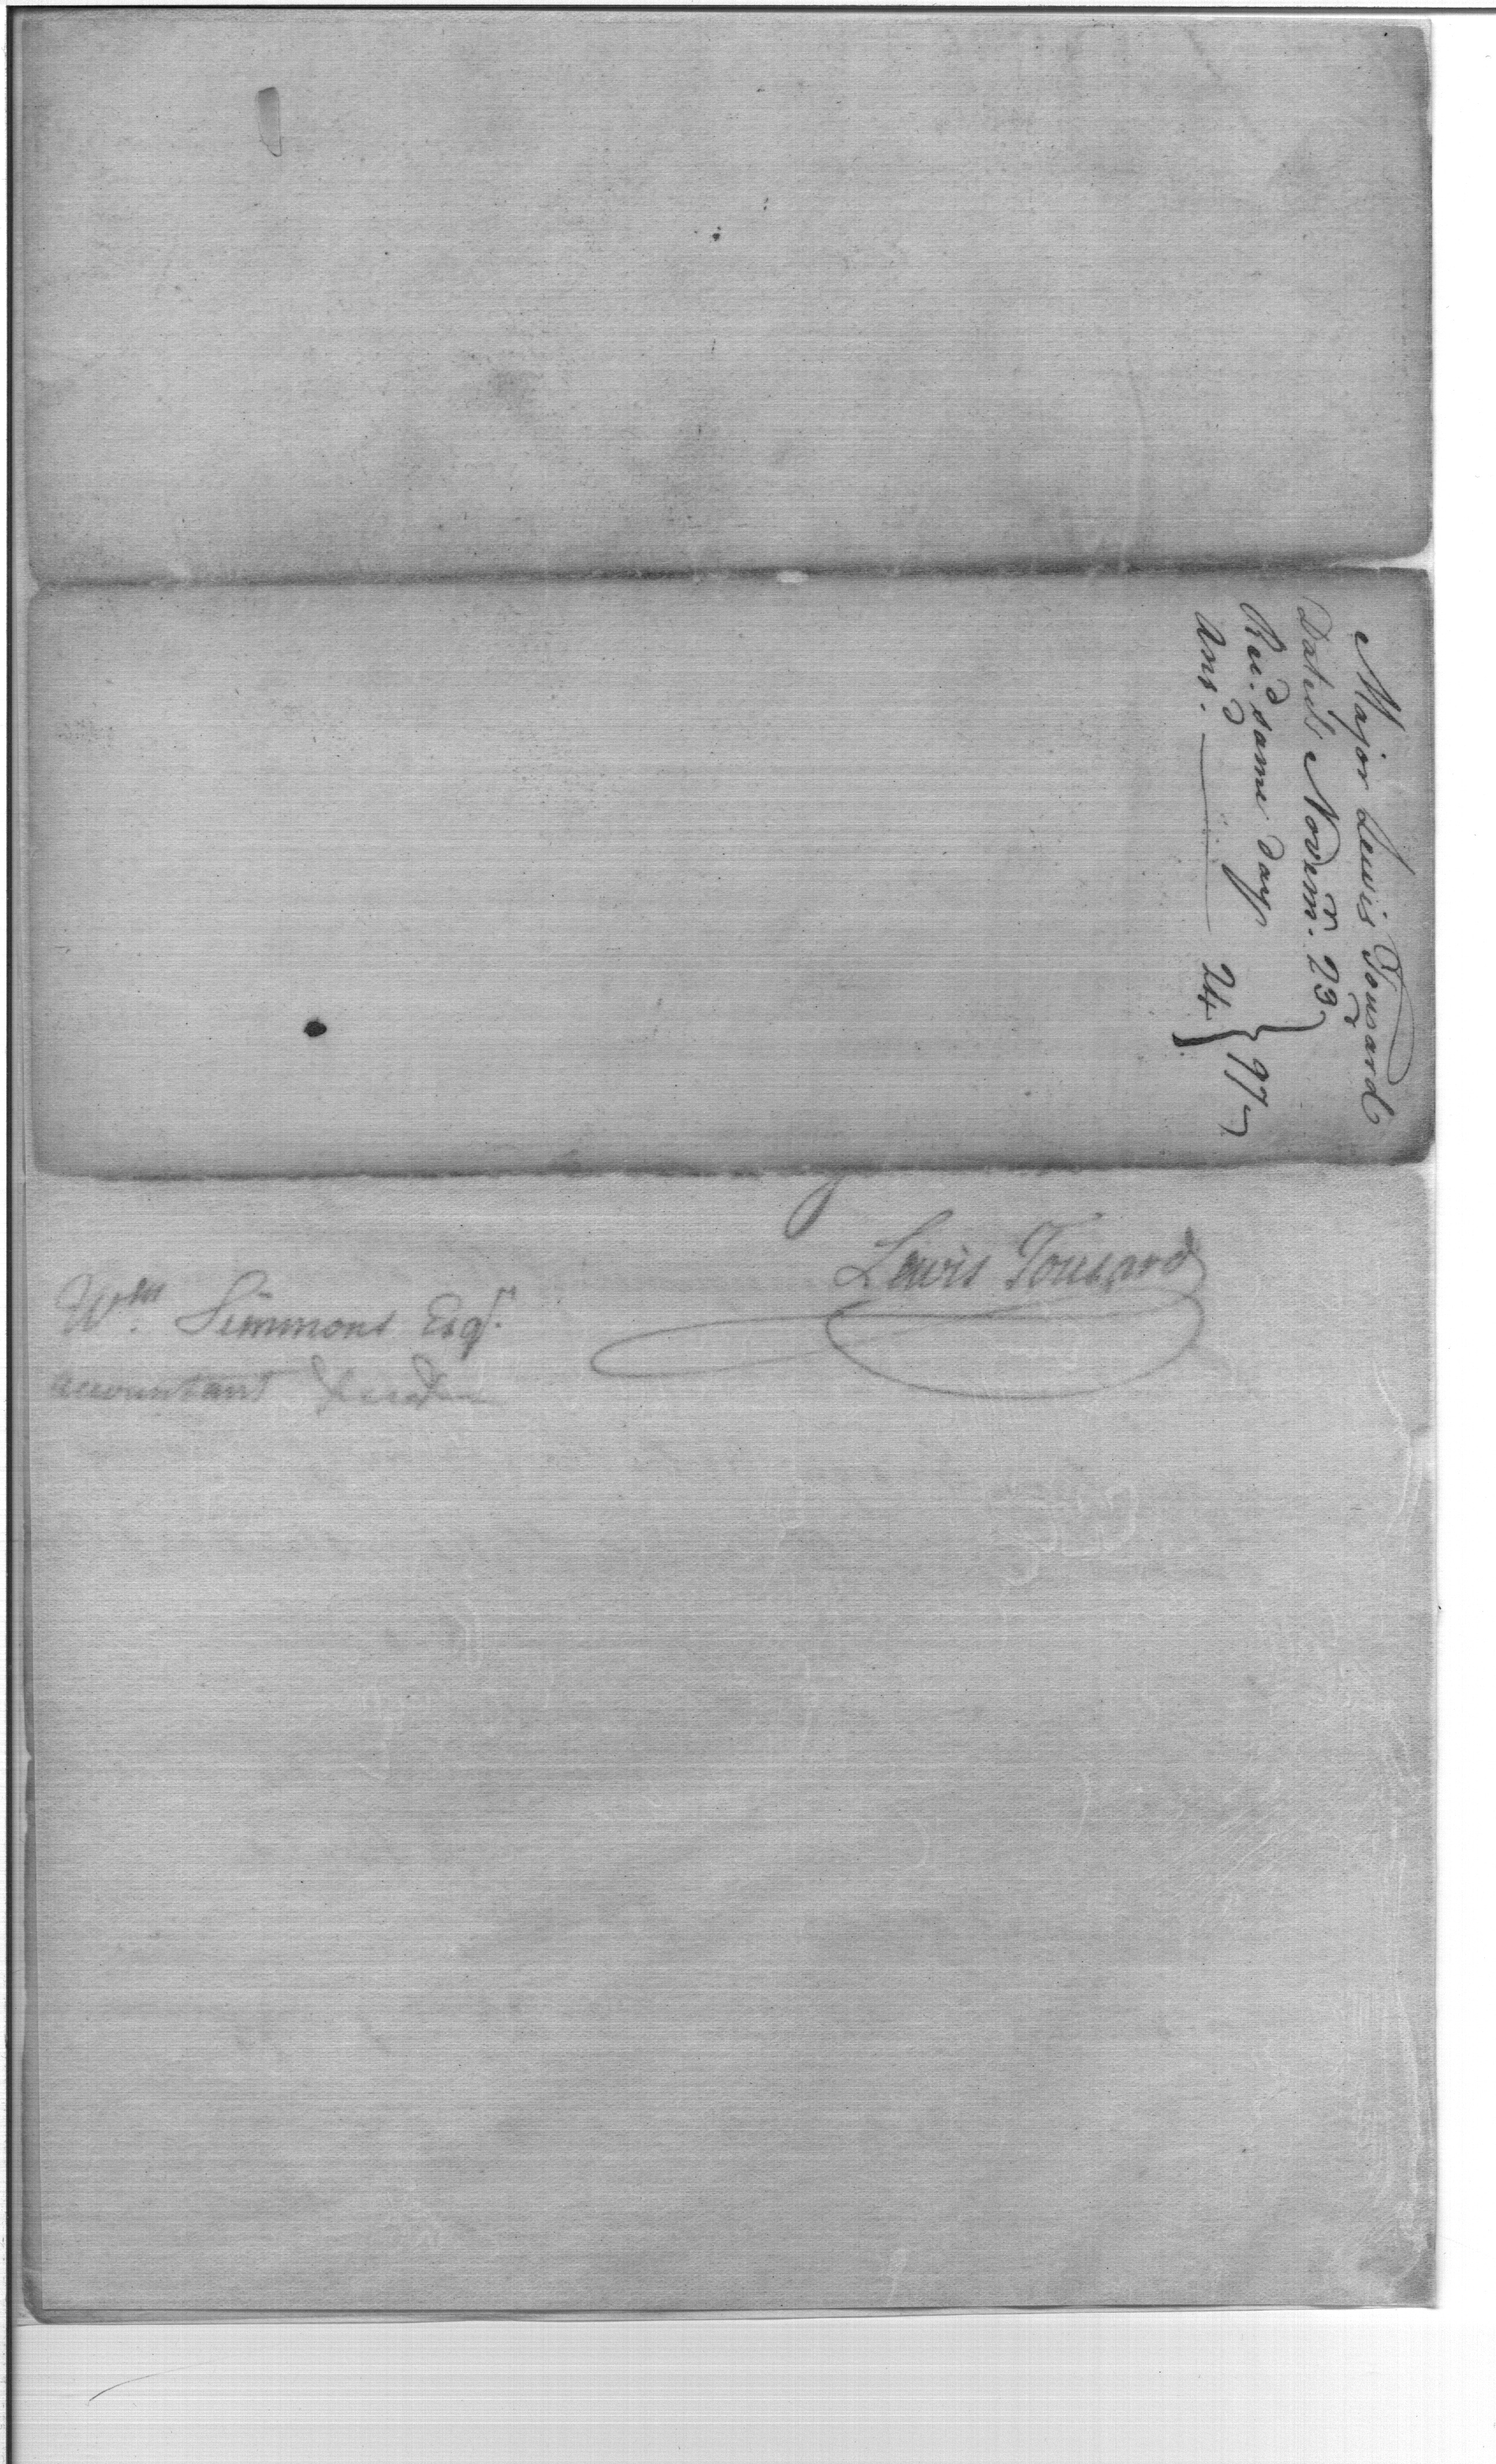 Major Lewis Tousard
Dated Novemr. 23
Recd. same day
Ansd. — 24 } 97
Lewis Tousard
Wm. Simmons Esqr.
accountant